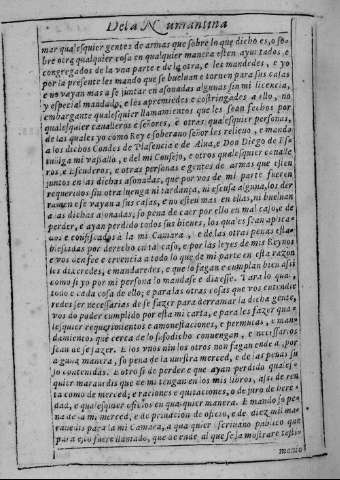 De la Numantina
mar qualesquier gentes de armas que sobre lo que dicho es, o so-
bre otra qualquier cosa en qualquier manera esten ayuntados, e
congregados de la vna parte e de la otra, e les mandedes, e yo
por la presente les mando que se bueluan e tornen para sus casas
e no vayan mas a se juntar en asonadas algunas sin mi licencia,
y especial mandado, e les apremiedes e costringades a ello, no
embargante qualesquier llamamientos que les sean fechos por
qualesquier caualleros e señores, e otras qualesquier personas,
de las quales yo como Rey e soberano señor les relieuo, e mando
a los dichos Condes de Plasencia e de Alua, e Don Diego de
mi vasallo, e del mi Consejo, e otros qualesquier caualle
ros e Escuderos, e otras personas e gentes de armas que esten
juntos en las dichas asonadas, que por vos de mi parte fueren
requeridos sin otra luenga ni tardança, ni escusa alguna, los der
ramen e se vayan a sus casas, e no esten mas en ellas, ni bueluan
a las dichas asonadas, so pena de caer por ello en mal caso, e de
perder, e ayan perdido todos sus bienes, los quales sean aplica-
dos e confiscados a la mi Camara, e de las otras penas esta-
blecidas por derecho en tal caso, e por las leyes de mis Reynos
e vos
les dixeredes, e mandaredes, e que lo fagan e cumplan bien assi
como si yo por mi persona lo mandase e dixesse. Para lo qual
todo e cada cosa de ello; e para las otras cosas que vos entendie
redes ser necessarias de se fazer para derramar la dicha gente,
vos do poder cumplido por esta mi carta, e para les fazer qua-
lesquier requerimientos e amonestaciones, e
damientos que cerca de lo susodicho conuengan, e necessarios
sean de se fazer. E los vnos nin los otros non fagan ende al por
alguna manera, so pena de la nuestra merced, e de las penas su
so contenidas. E otrosi de perder e que ayan perdido quales-
quier marauedis que de mi tengan en los mis libros, assi de ren
ta como de merced, e raciones e quitaciones, o de juro de here
dad, e qualesquier oficios en qualquier manera. E mando so pe
na de la mi merced, e de priuacion de oficio, e de diez mil ma-
rauedis para la mi Camara, a qualquier escriuano publico que
para esto fuere llamado, que de ende al que se la mostrare testi-
monio